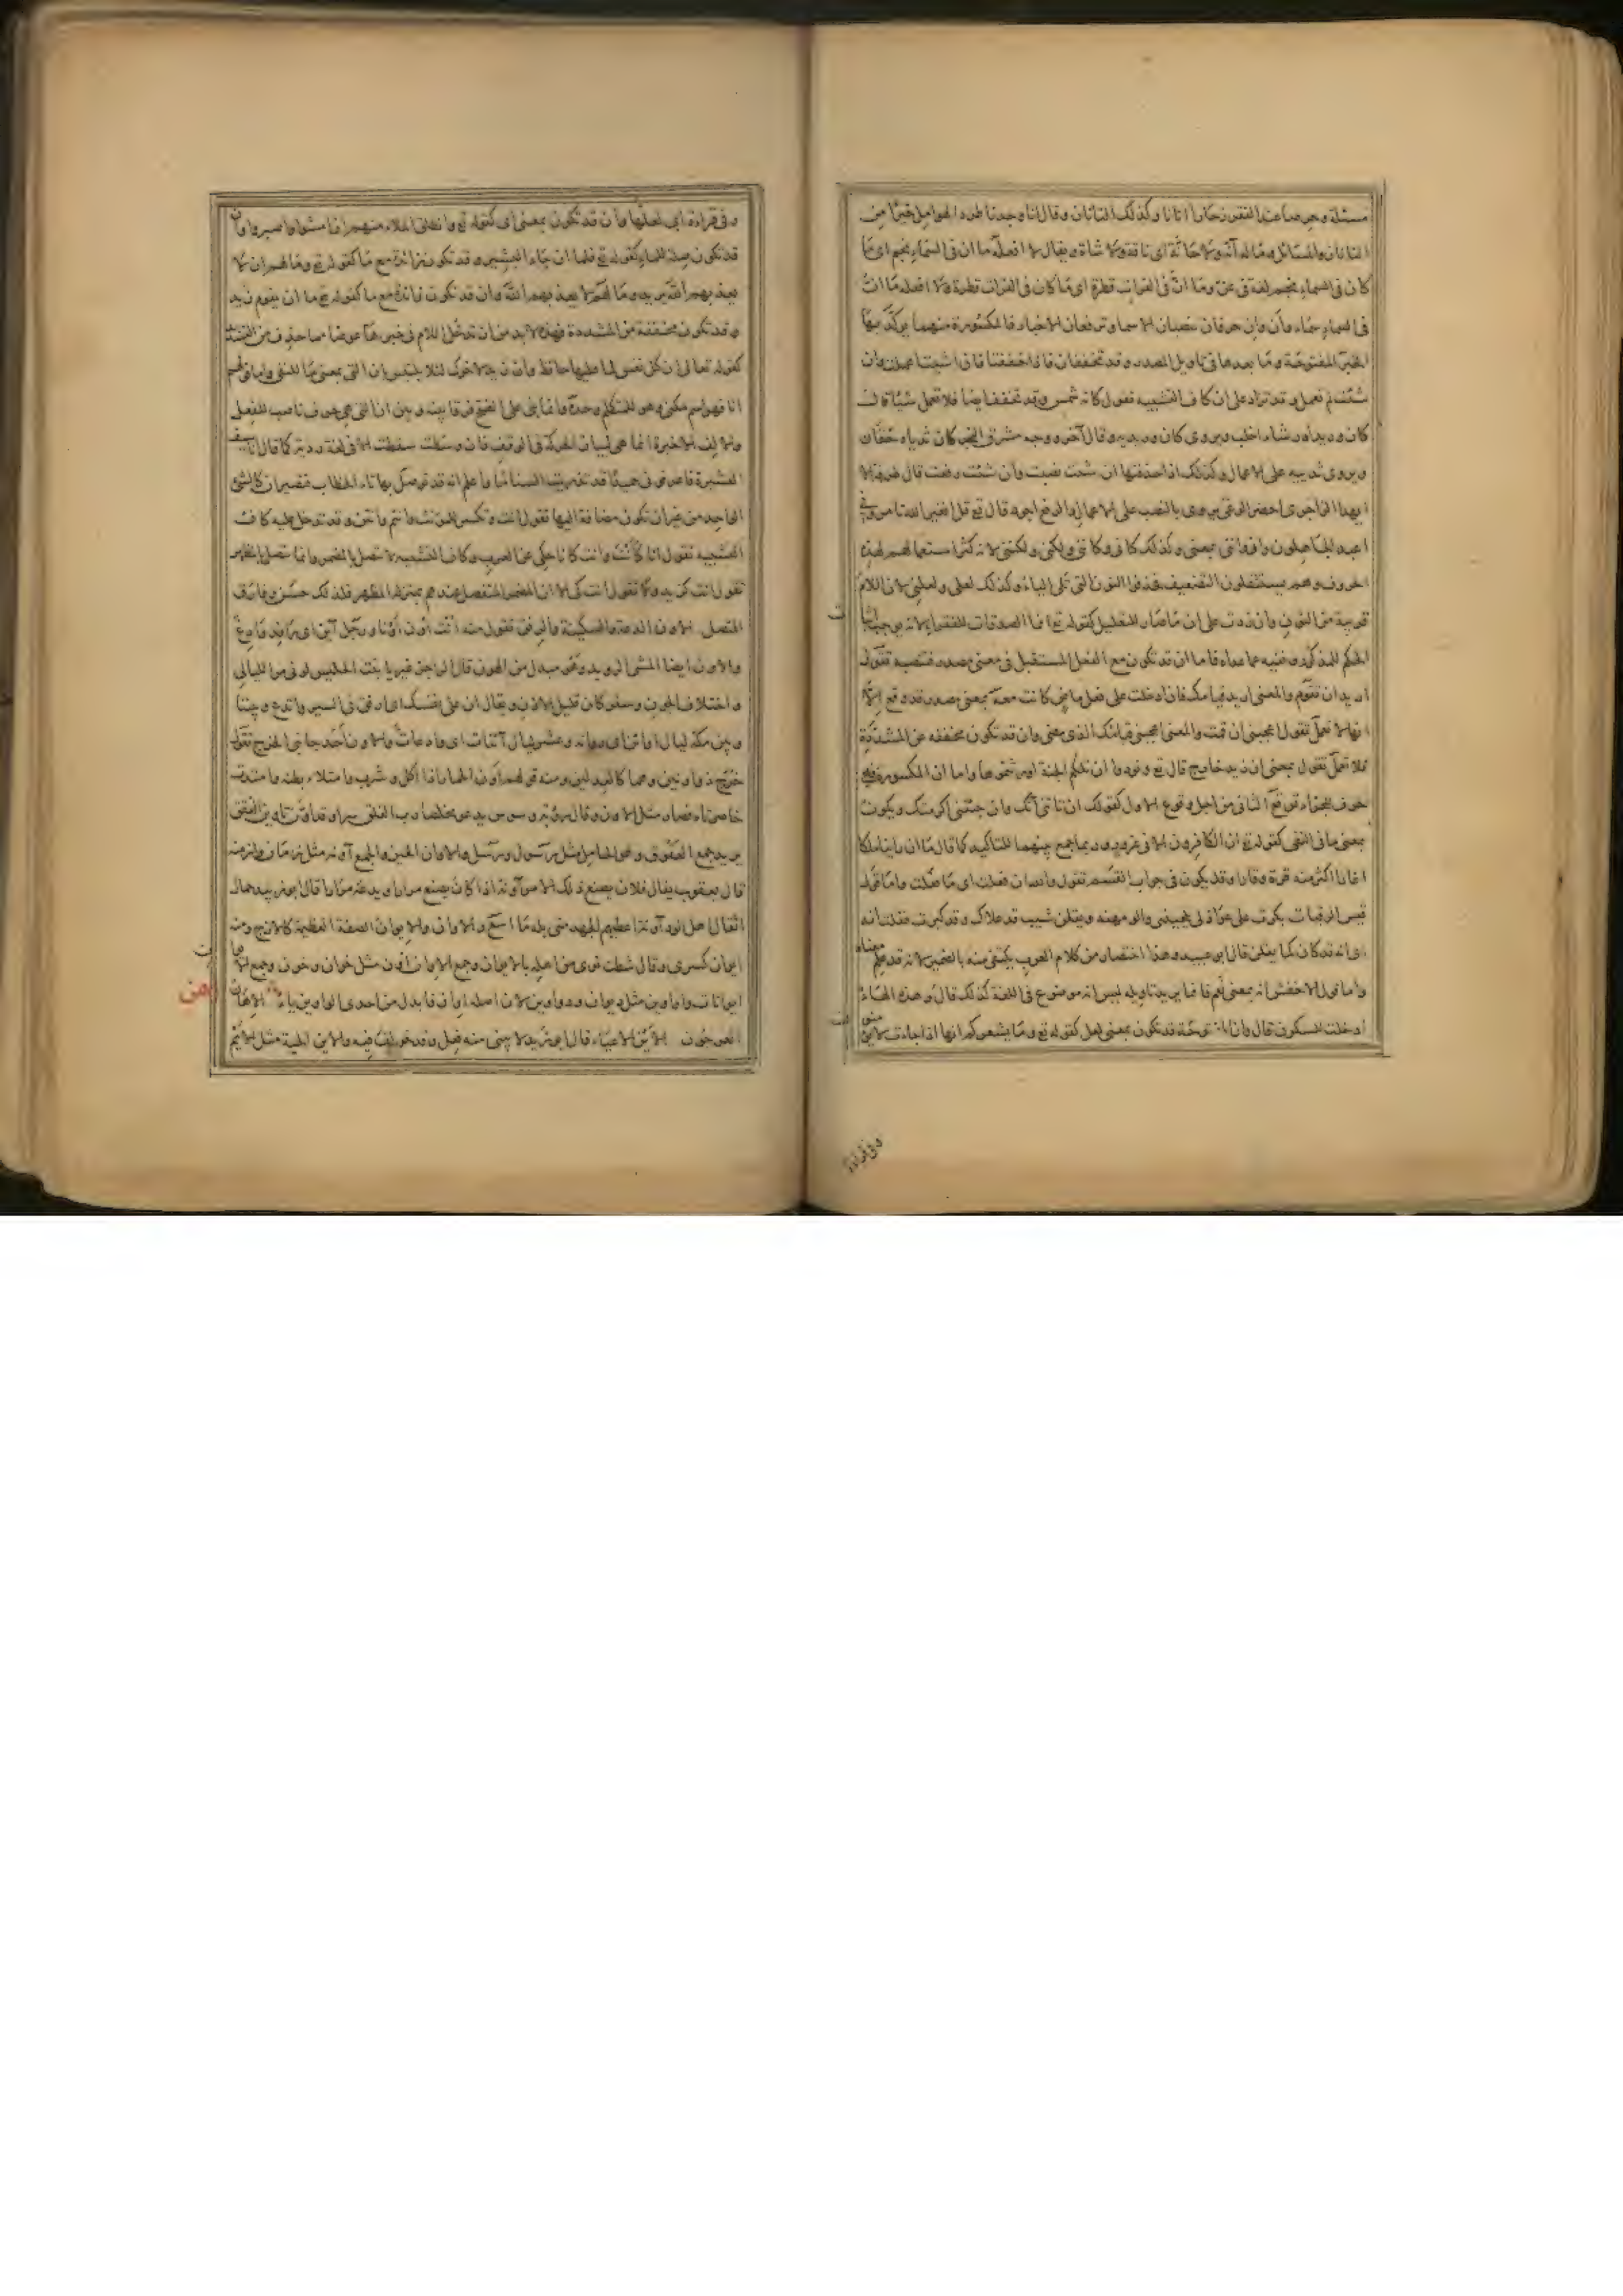 مسئلة وحرصا عند الفقر زحارا انانا وكذلك التانان وقال انا وجدنا طرد الهوامل خيرا من
التانان والمسائل وما له آنة ولا حانّة اى ناقة ولا شاة ويقال لا افعله ما ان فى السماء نجم اى ما
كان فى السماء نجم لغة فى عن وما انّ فى الفرات قطرة اى ما كان فى الفرات قطرة ولا افعله ما انّ
فى السماء سماء وأن وإن حرفان ينصبان الاسماء ويرفعان الاخبار فالمكسورة منهما يؤكّد بها
الخبر والمفتوحة وما بعدها فى تأويل المصدر وقد تخففان فاذا خففتا فان شئت اعملت وان
شئت لم تعمل وقد تزاد على ان كاف التشبيه تقول كانه شمس وقد تخفف ايضا فلا تعمل شيئا قال
كان وريداه رشاء اخلب ويروى كان وريديه وقال آخر ووجه مشرق النحر كان ثدياه حقّان
ويروى ثدييه على الاعمال وكذلك اذا حذفتها ان شئت نصبت وان شئت رفعت قال طرفة الا
ايهذا الزاجرى احضر الوغى يروى بالنصب على الاعمال والرفع اجود قال تع قل افغير الله تامرونى
اعبد ايها الجاهلون وانى وانّنى بمعنى وكذلك كانى وكاننى ولكنى ولكننى لانه كثر استعمالهم لهذه
الحروف وهم يستثقلون التضعيف فحذفوا النون التى تلى الياء وكذلك لعلى ولعلنى لان اللام
قريبة من النون وان زدت على ان ما صار للتعليل كقوله تع انما الصدقات للفقراء لانه يوجب اثبات
الحكم للمذكور ونفيه عما عداه فاما ان قد تكون مع الفعل المستقبل فى معنى مصدر فتنصبه تقول
اريد ان تقوم والمعنى اريد قيامك فان دخلت على فعل ماض كانت معه بمعنى مصدر قد وقع الا
انها لا تعمل تقول اعجبنى ان قمت والمعنى اعجبنى قيامك الذى مضى وان قد تكون مخففة عن المشدّدة
فلا تعمل تقول بلغنى ان زيد خارج قال تع ونودوا ان تلكم الجنة اورثتموها واما ان المكسورة فهى
حرف للجزاء توقع الثانى من اجل وقوع الاول كقولك ان تاتنى آتك وان جئتنى اكرمتك ويكون
بمعنى ما فى النفى كقوله تع ان الكافرون الا فى غرور وربما جمع بينهما للتاكيد كما قال ما ان راينا ملكا
اغارا اكثر منه قرة وقارا وقد يكون فى جواب القسم تقول والله ان فعلت اى ما فعلت واما قول
قيس الرقيات بكرت على عواذلى يلحيننى والومهنه ويقلن شيب قد علاك وقد كبرت فقلت انه
اى انه قد كان كما يقلن قال ابو عبيد وهذا اختصار من كلام العرب يكتفى منه بالضمير لانه قد علم معناه
واما قول الاخفش انه بمعنى نعم فانما يريد تاويله ليس انه موضوع فى اللغة كذلك قال وهذه الهاء
ادخلت للسكون قال وان المفتوحة قد تكون بمعنى لعل كقوله تع وما يشعركم انها اذا جاءت لا يؤمنون
وفى قراءة
وفى قراءة ابى لعلها وأن قد تكون بمعنى اى كقوله تع وانطلق الملاء منهم ان امشوا واصبروا وان
قد تكون صلة للما كقوله تع فلما ان جاء البشير وقد تكون زائدة مع ما كقوله تع وما لهم ان لا
يعذبهم الله يريد وما لهم لا يعذبهم الله وان قد تكون زائدة مع ما كقوله تع ما ان يقوم زيد
وقد تكون مخففة من المشددة فهذه لا بد من ان تدخل اللام فى خبرها عوضا مما حذف من التشديد
كقوله تعالى ان كل نفس لما عليها حافظ وان زيد لاخوك لئلا يلتبس بان التى بمعنى ما للنفى واما قولهم
انا فهو اسم مكنى وهو للمتكلم وحده وانما بنى على الفتح فرقا بينه وبين ان التى هى حرف ناصب للفعل
والالف الاخيرة انما هى لبيان الحركة فى الوقف فان وسطت سقطت الا فى لغة رديّة كما قال انا سيف
العشيرة فاعرفونى حميدًا قد تذريت السناما واعلم انه قد توصل بها تاء الخطاب فيصيران كالشئ
الواحد من غير ان تكون مضافة اليها تقول انت وتكسر للمؤنث وانتم وانتن وقد تدخل عليه كاف
التشبيه تقول انا كأنت وانت كانا حكى عن العرب وكاف التشبيه لا تتصل بالمضمر وانما تتصل بالمظهر
تقول انت كزيد ولا تقول انت كى الا ان المضمر المنفصل عندهم بمنزلة المظهر فلذلك حسُن وفارق
المتصل الاون الدعة والسكينة والرفق تقول منه أنت أؤن أونا ورجل آين اى رافه وادع
والاون ايضا المشى الرويد وهو مبدل من الهون قال الراجز غير يا بنت الحليس لونى مر الليالى
واختلاف الجون وسفر كان قليل الاون ويقال ان على نفسك اى ارفق فى السير واتدع وبيننا
وبين مكة ليال اوائن اى روافه وعشر ليال آئنات اى وادعات والاون أحد جانبى الخرج تقول
خرج ذو اونين وهما كالعدلين ومنه قولهم اوّن الحمار اذا اكل وشرب وامتلاء بطنه وامتدت
خاصرتاه فصار مثل الاون وقال رؤبة وسوس يدعو مخلصا رب الفلق سرا وقد اوّن تاوين العقق
يريد جمع العقوق وهى الحامل مثل رسول ورسل والاوان الحين والجمع آونة مثل زمان وازمنة
قال يعقوب يقال فلان يصنع ذلك الامر آونة اذا كان يصنع مرارا ويدعه مرارا قال ابو زبيد حمال
اثقال اهل الود آونة اعطيهم الجهد منى بله ما اسع والاوان والايوان الصفة العظيمة كالازج ومنه
ايوان كسرى وقال شطت نوى من اهله بالايوان وجمع الاوان أون مثل خوان وخون وجمع الايوان
ايوانات واواوين مثل ديوان ودواوين لان اصله اوان فابدل من احدى الواوين ياء الاهان
العرجون الأين الاعياء قال ابو زيد لا يبنى منه فعل وقد خولف فيه والاين الحية مثل الايم